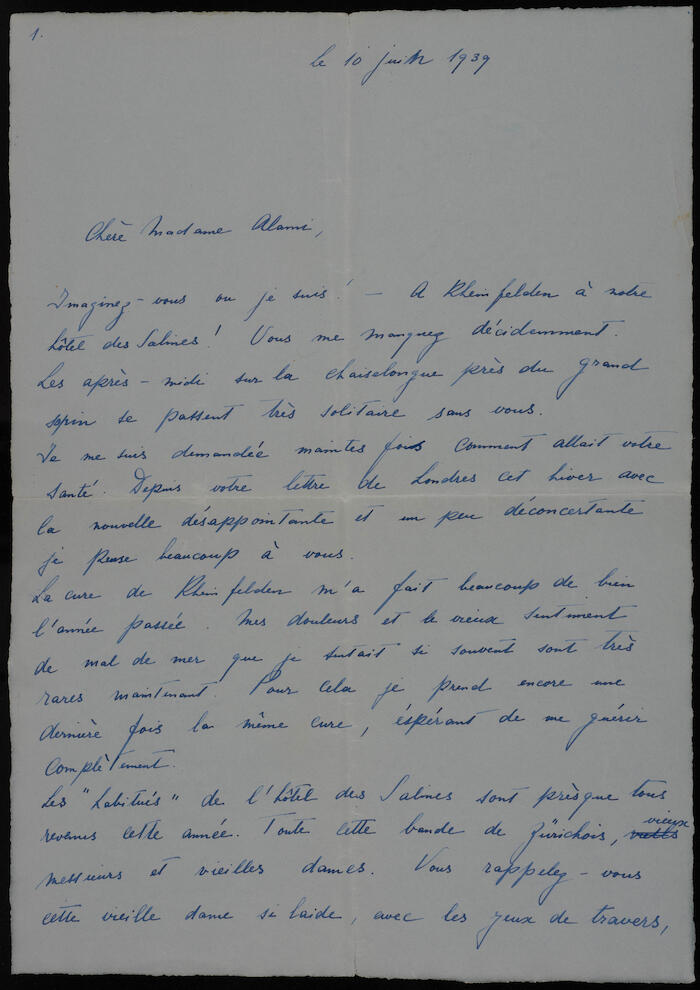 1.
le 10 juin 1939
Chère Madame Alami,
Imaginez-vous ou je suis! — A Rheinfelden à notre
hôtel des Salines! Vous me manquez décidemment.
Les après-midi sur la chaiselongue près du grand
sapin se passent très solitaire sans vous.
Je me suis demandée maintes fois comment allait votre
santé. Depuis votre lettre de Londres cet hiver avec
la nouvelle désappointante et un peu déconcertante
je pense beaucoup à vous.
La cure de Rheinfelden m'a fait beaucoup de bien
l'année passée. Mes douleurs et le vieux sentiment
de mal de mer que je sentait si souvent sont très
rares maintenant. Pour cela je prend encore une
dernière fois la même cure, éspérant de me guérir
complètement.
Les "habitués" de l'hôtel des Salines sont prèsque tous
revenus cette année. Toute cette bande de Zürichois, vieux
messieurs et vieilles dames. Vous rappelez-vous
cette vieille dame si laide, avec les yeux de travers,